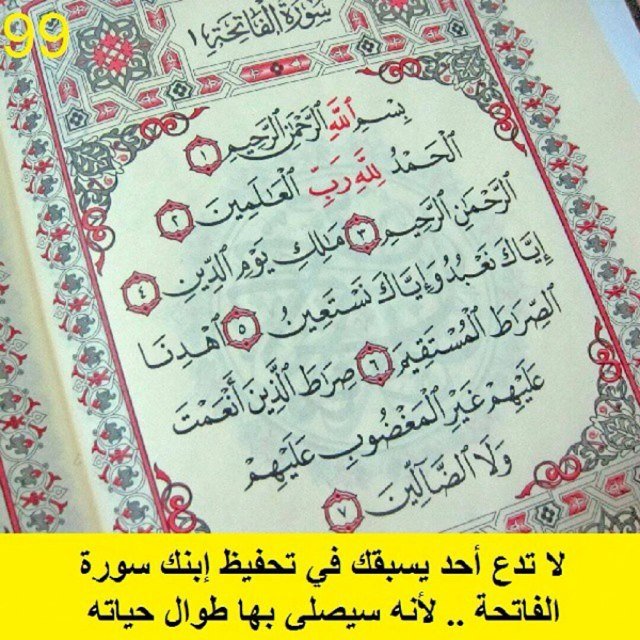 99
سورة الفاتحة ١
بِسْمِ اللَّهِ الرَّحْمَٰنِ الرَّحِيمِ ١
الْحَمْدُ لِلَّهِ رَبِّ الْعَٰلَمِينَ ٢
الرَّحْمَٰنِ الرَّحِيمِ ٣ مَٰلِكِ يَوْمِ الدِّينِ ٤
إِيَّاكَ نَعْبُدُ وَإِيَّاكَ نَسْتَعِينُ ٥ اهْدِنَا
الصِّرَاطَ الْمُسْتَقِيمَ ٦ صِرَاطَ الَّذِينَ أَنْعَمْتَ
عَلَيْهِمْ غَيْرِ الْمَغْضُوبِ عَلَيْهِمْ
وَلَا الضَّالِّينَ ٧
لا تدع أحد يسبقك في تحفيظ إبنك سورة
الفاتحة .. لأنه سيصلى بها طوال حياته